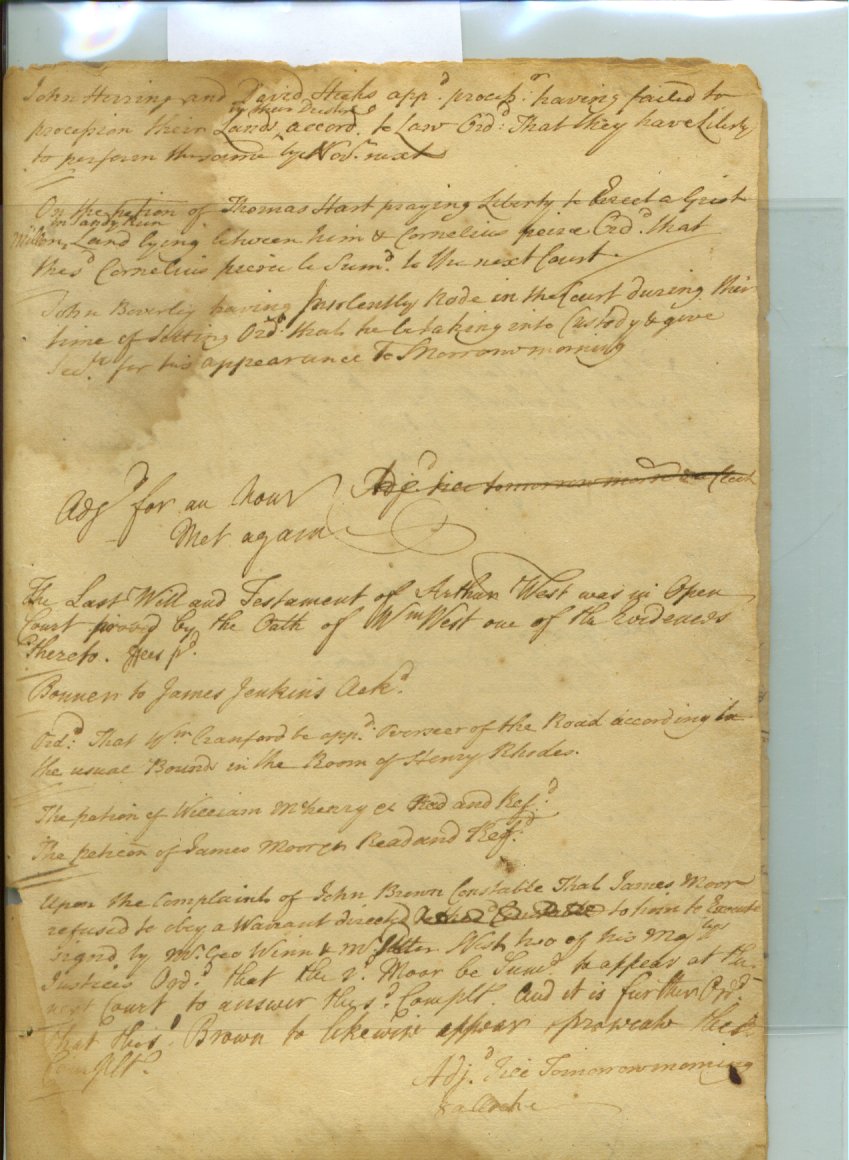 John Herring and David Hicks app.d process.rs having failed to
in their Destrict
procession their Lands accord. to Law Ord.d That they have Liberty
to perform the same by Nov.r next
On the petion of Thomas Hart praying Liberty to Erect a Grist
on Sandy Run
Mill on Land lying between him & Cornelius peirce Ord.d that
the s.d Cornelius peirce be Sum.d to the next Court.
John Beverly having Insolently Rode in the Court during their
time of Setting Ord.d that he be taking into Custody & give
Secu.r for his appearance To Morrow morning
Adj.d for an hour
Adj.d till tomorrow morn
Met again
The Last Will and Testament of Arthur West was in Open
Court proved by the Oath of W.m West one of the Evidences
thereto. fees p.d
Bonner to James Jenkins Ack.d
Ord.d That W.m Cranford be app.d Overseer of the Road according to
the usual Bounds in the Room of Henry Rhodes.
The petion of William McHenry & Red and Rej.d
The peticon of James Moor & Read and Rej.d
Upon the Complaint of John Brown Constable That James Moor
refused to obey a Warrant directed to him to Execute
signd by Mr. Geo Winn & Mr. West two of his Maj.ties
Justices Ord.d that the s.d Moor be Sum.d to appear at the
next Court to answer the s.d Complt. And it is further Ord.d
that the s.d Brown to likewise appear & prosecute the s.d
Complt.
Adj.d till Tomorrow morning
8 a Clock